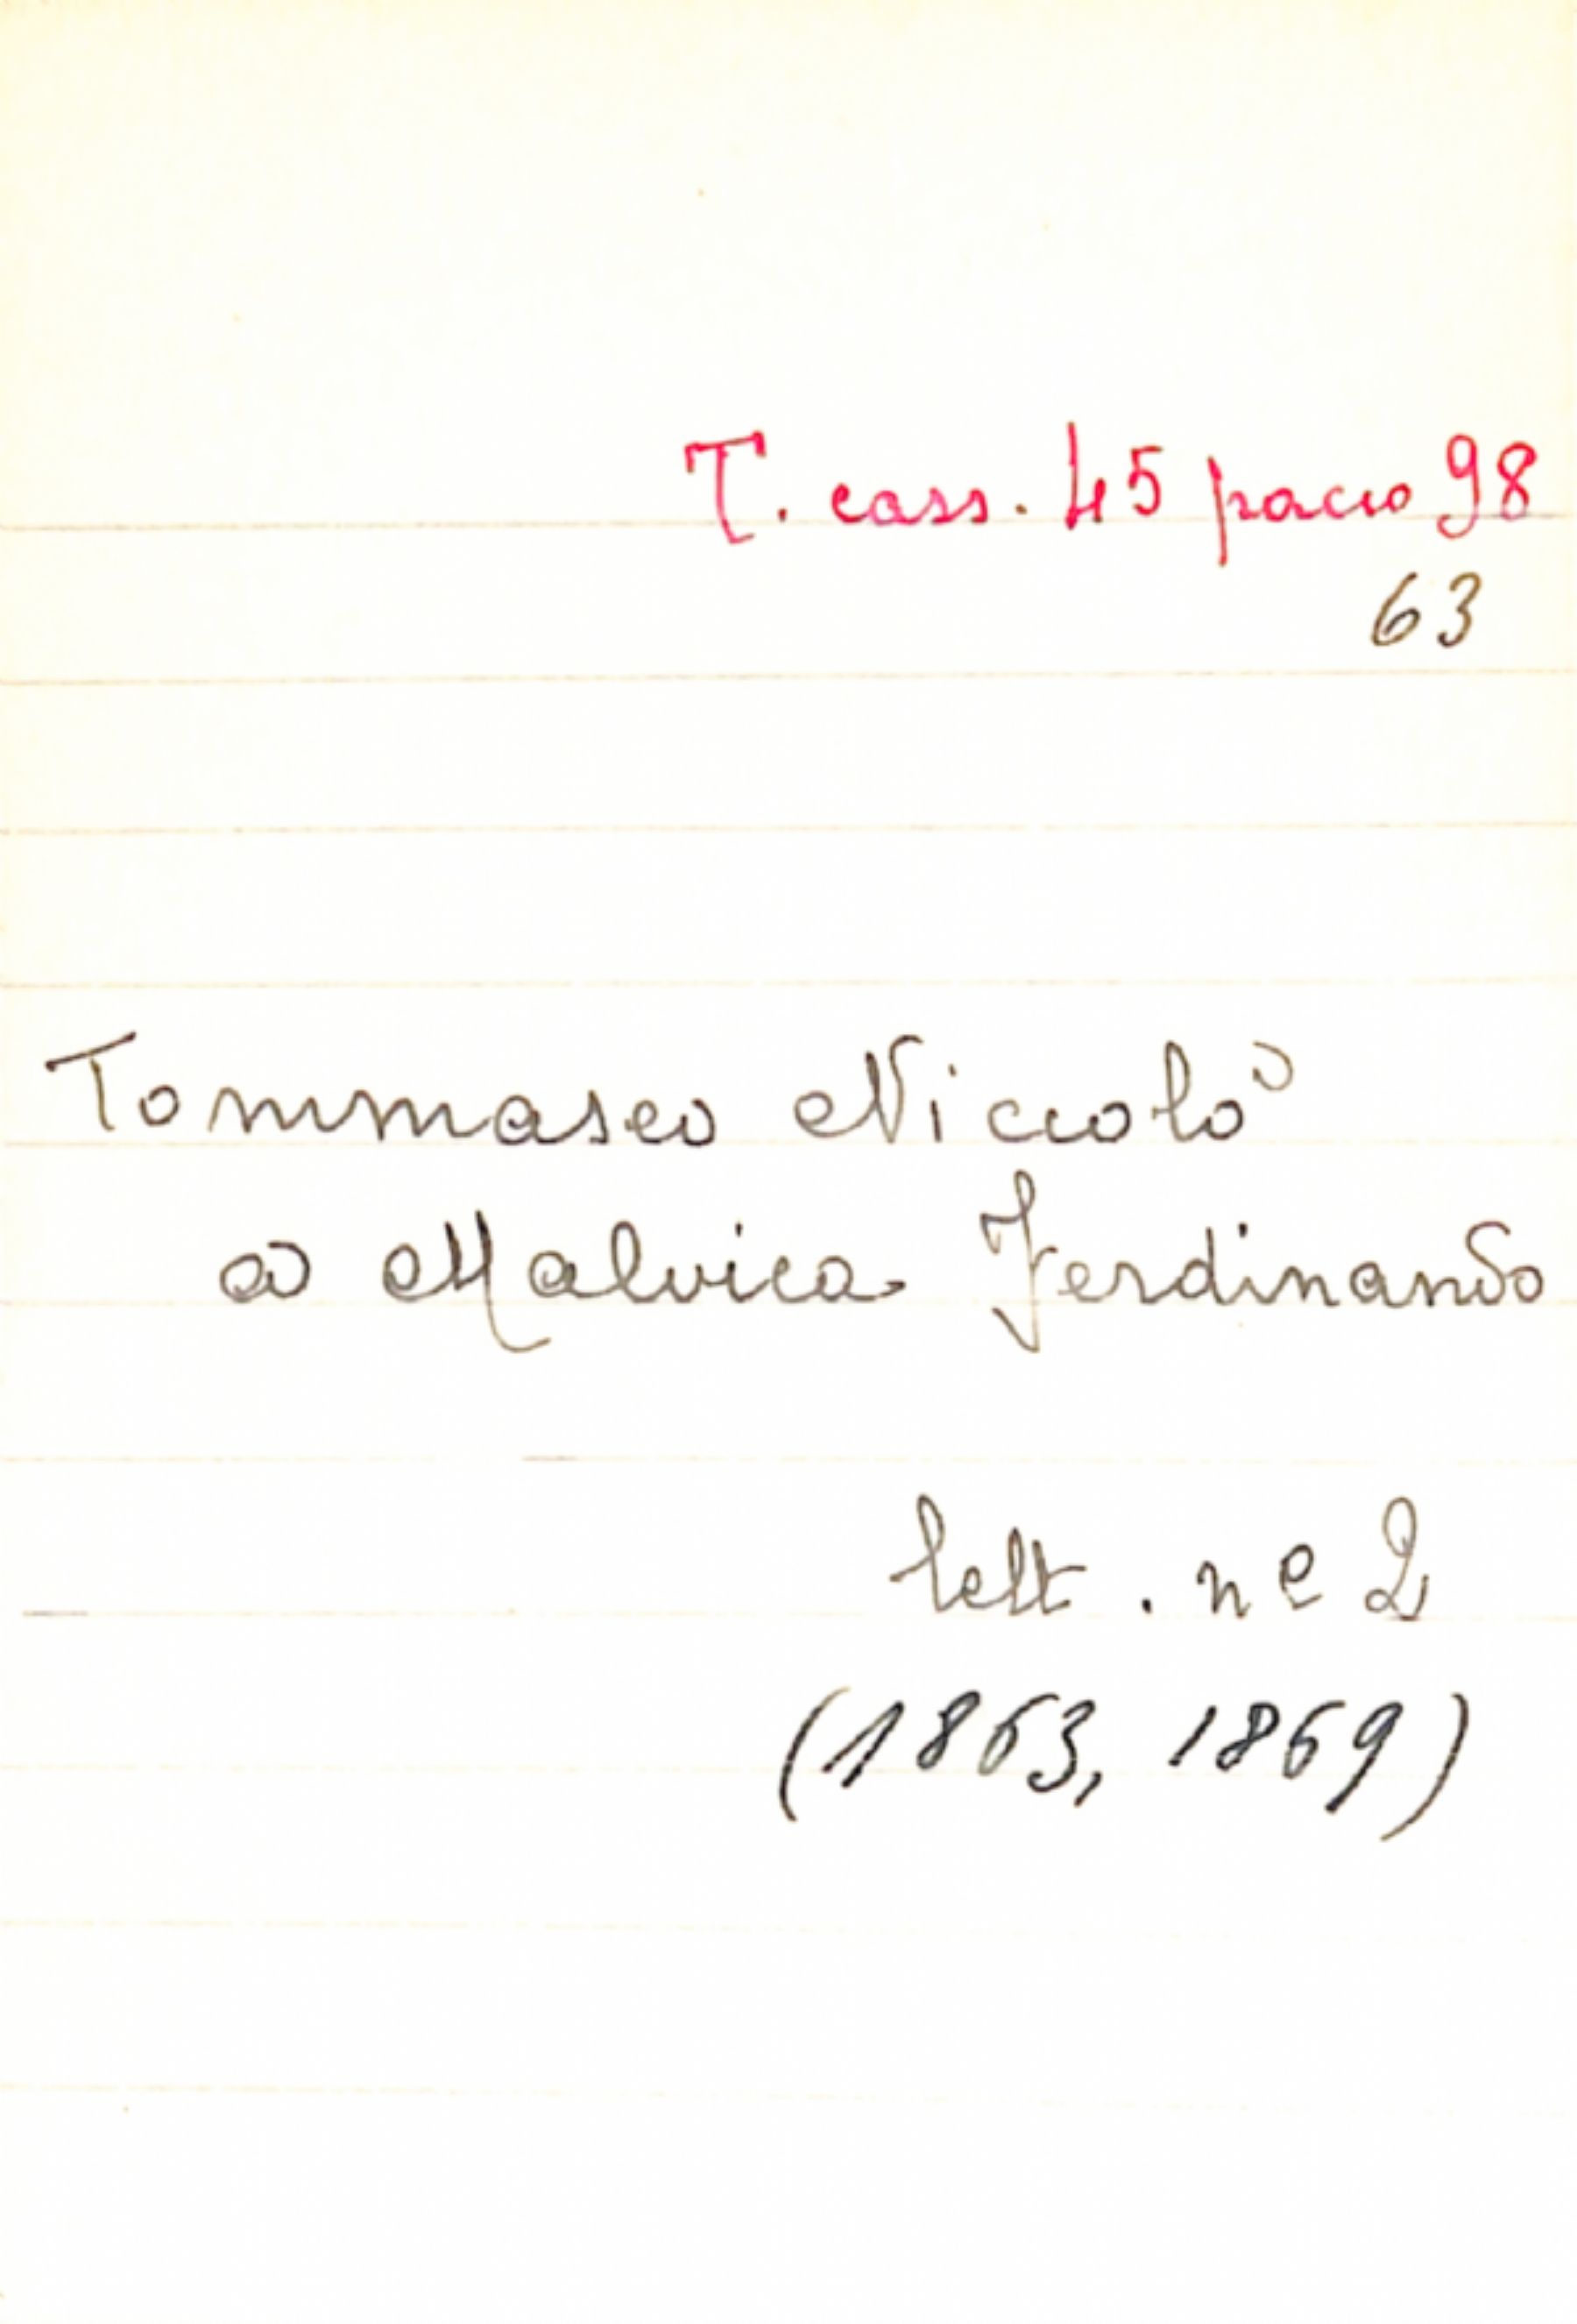 T. cass. 45 pacco 98
63
Tommaseo Niccolò
a Malvica Ferdinando
lett. nº 2
(1863, 1869)